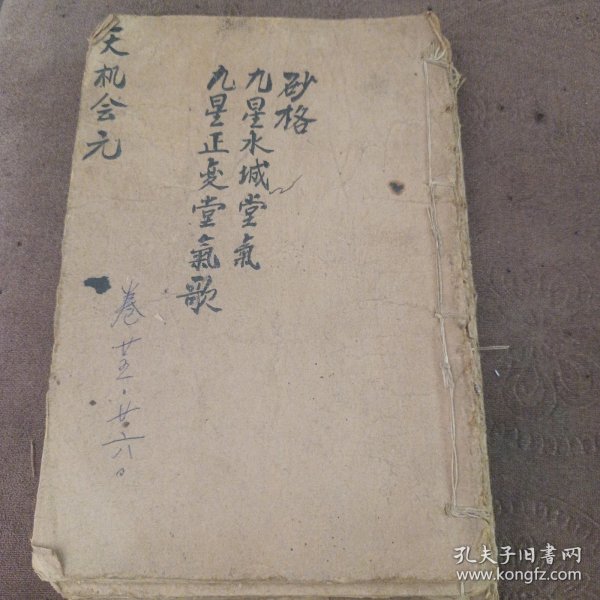 砂格
九星水城堂氣
九星正变堂氣歌
天机会元
卷廿五·廿六。
孔夫子旧书网
www.kongfz.com